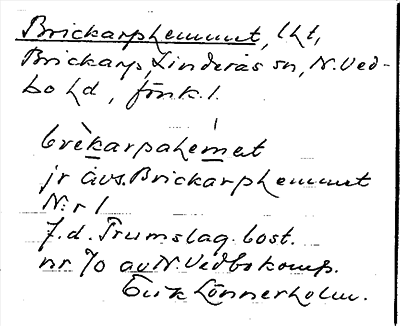 Brickarphemmet, lht,
Brickarp, Linderås sn, N. Ved-
bo hd, förk.l.
brèkarpahemet
jr avs. Brickarphemmet
N:r 1
f.d. Trumslag. bost.
nr 70 av N. Vedbo komp.
Erik Lönnerholm.